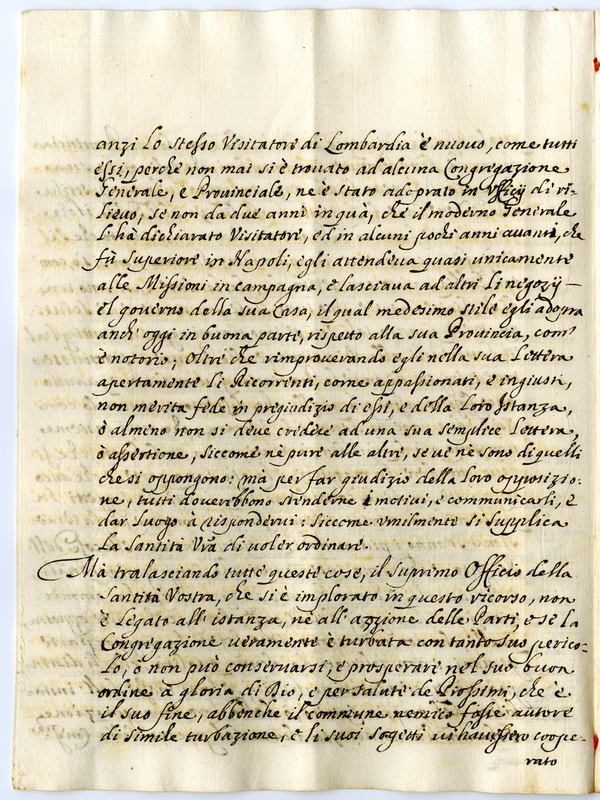 anzi lo stesso Visitatore di Lombardia è nuovo, come tutti
essi, perche non mai si è trovato ad alcuna Congregazione
Generale, e Provinciale, ne è stato adoprato in Officij di ri-
lievo, se non da due anni in quà, che il moderno Generale
l'hà dichiarato Visitatore, ed in alcuni pochi anni avanti, che
fù Superiore in Napoli, egli attendeva quasi unicamente
alle Missioni in campagna, e lasciava ad altri li negozij
el governo della sua Casa, il qual medesimo stile egli adopra
anch' oggi in buona parte, rispetto alla sua Provincia, com'
è notorio; Oltre che rimproverando egli nella sua Lettera
apertamente li Ricorrenti, come appassionati, e ingiusti,
non merita fede in pregiudizio di essi, e della loro Istanza,
ò almeno non si deve credere ad una sua semplice Lettera,
ò assertione, siccome nè pure alle altre, se ve nè sono di quelli
che si oppongono: mà per far giudizio della loro opposizio-
ne, tutti doverebbono stenderne i motivi, e communicarli, e
dar luogo à rispondervi: siccome umilmente si supplica
la Santità Vrã di voler ordinare.
Mà tralasciando tutte queste cose, il supremo Officio della
Santità Vostra, che si è implorato in questo ricorso, non
è legato all' istanza, nè all' azzione delle Parti, e se la
Congregazione veramente è turbata con tanto suo perico-
lo, ò non può conservarsi, e prosperare nel suo buon
ordine à gloria di Dio, e per salute de Prossimi, che è
il suo fine, abbenche il commune nemico fosse autore
di simile turbazione, e li suoi sogetti vi havessero coope-
rato